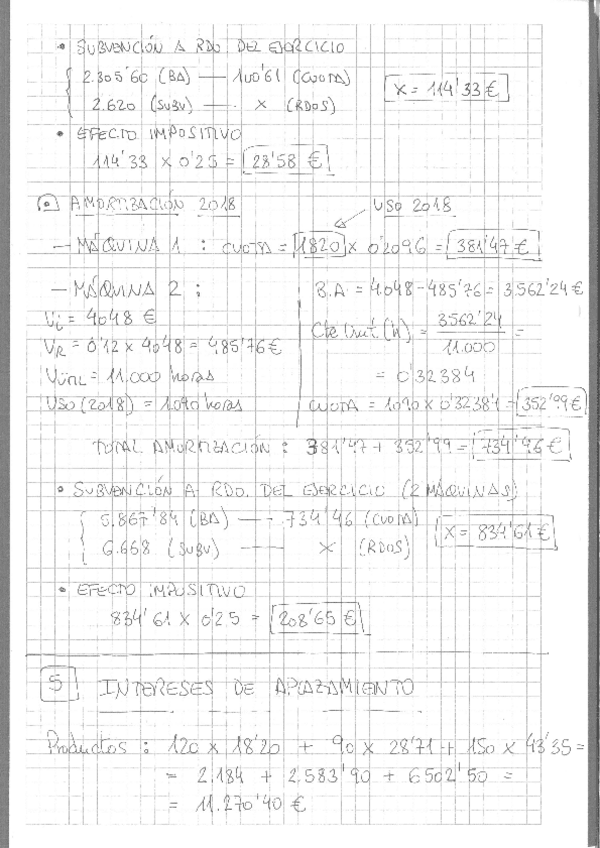 • SUBVENCIÓN A RDO. DEL EJERCICIO
2.305'60 (BA) — 100'61 (CUOTA)
2.620 (SUBV) — X (RDOS)
X = 114'33 €
• EFECTO IMPOSITIVO
114'33 x 0'25 = 28'58 €
AMORTIZACIÓN 2018
USO 2018
— MÁQUINA 1 : CUOTA = 1820 x 0'2096 = 381'47 €
— MÁQUINA 2 :
Vi = 4048 €
VR = 0'12 x 4048 = 485'76 €
VÚTIL = 11.000 horas
USO (2018) = 1090 horas
B.A = 4048 - 485'76 = 3.562'24 €
Cte Unit. (h) = 3562'24 / 11.000 =
= 0'32384
CUOTA = 1090 x 0'32384 = 352'99 €
TOTAL AMORTIZACIÓN : 381'47 + 352'99 = 734'46 €
• SUBVENCIÓN A RDO. DEL EJERCICIO (2 MÁQUINAS)
5.867'84 (BA) — 734'46 (CUOTA)
6.668 (SUBV) — X (RDOS)
X = 834'61 €
• EFECTO IMPOSITIVO
834'61 x 0'25 = 208'65 €
5 INTERESES DE APLAZAMIENTO
Productos : 120 x 18'20 + 90 x 28'71 + 150 x 43'35 =
= 2.184 + 2.583'90 + 6502'50 =
= 11.270'40 €